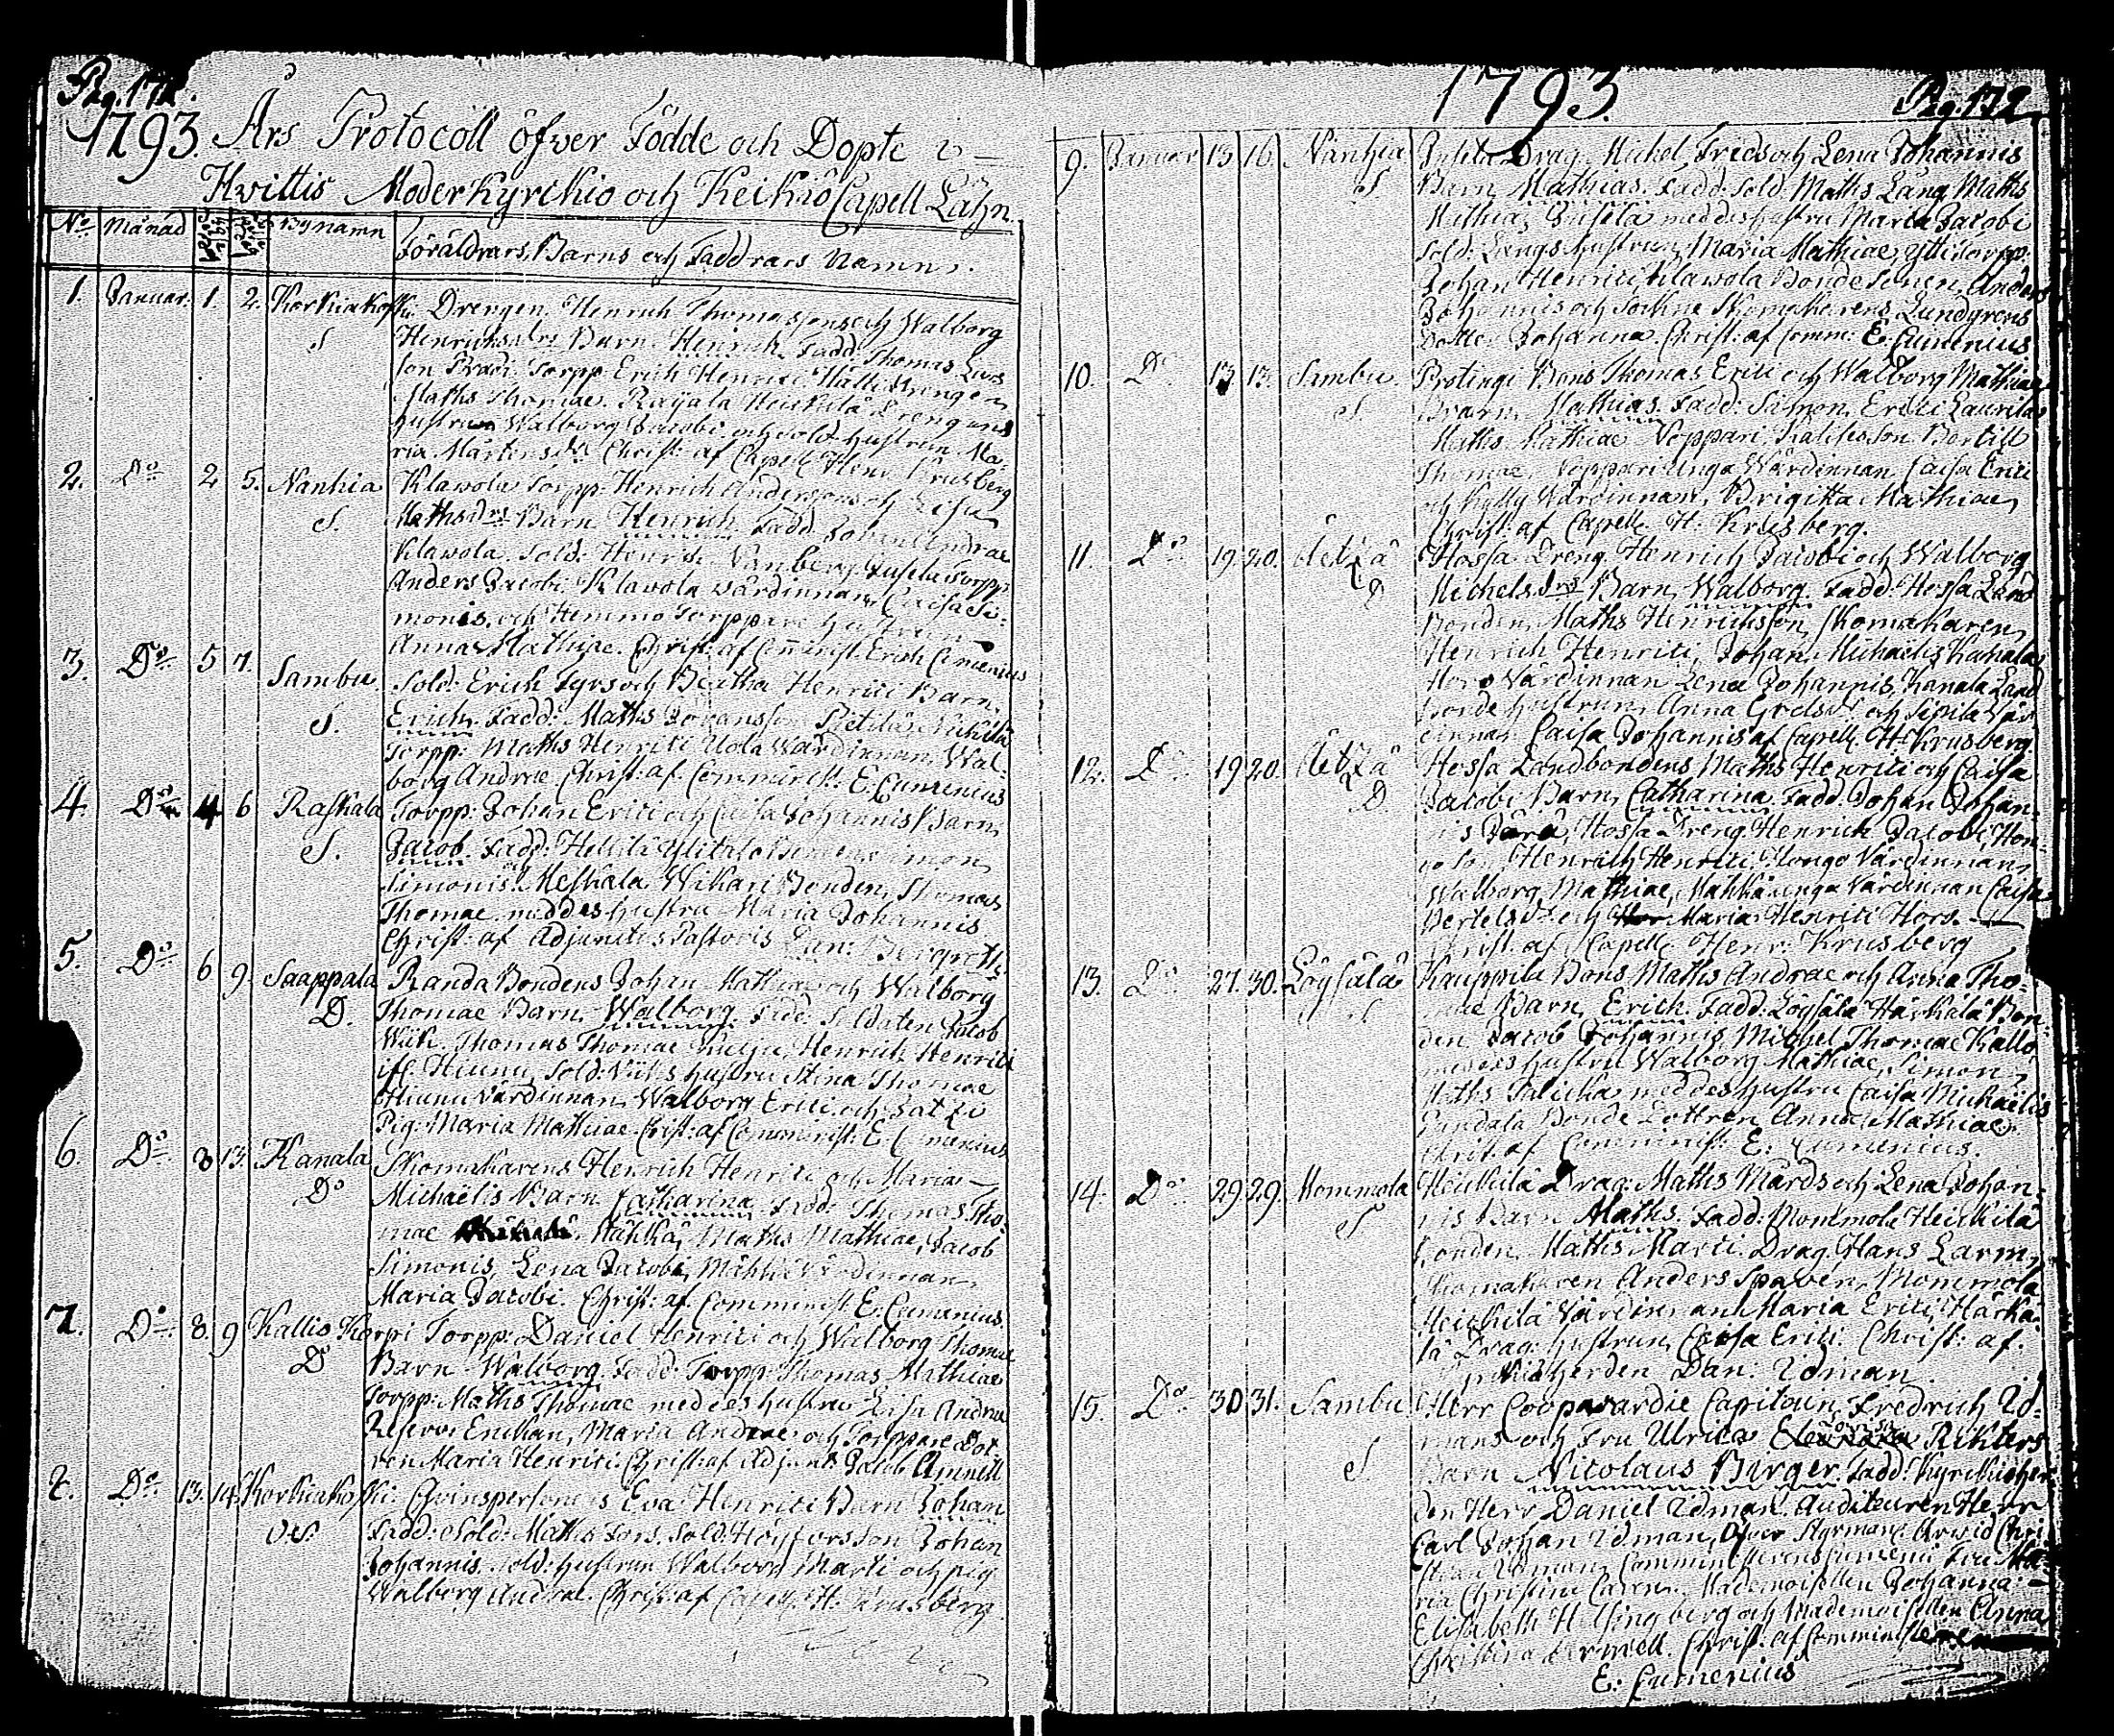 Pag. 171.
1793. Års Protocoll öfver Födde och Döpte i
Hvittis Moderkyrckio och Keikiö Capell Lähn.
No Månad Bynamn
Föräldrars, Barns och Faddrars Namn.
1. Januar. 1. 2. Korkiakoski. Drengen Henrich Thomasson och Walborg
S Henrichsdrs Barn Henrich. Fadd: Thomas
son Torpp: Erich Henrici
Maths Thomae. Raijala Heickilä Drengens
hustrun Walborg Jacobi och Sold. hustrun Ma-
ria Mårtensdr. Christ: af Capell: Henr: Krusberg
2. Do 2 5. Nanhia Klawola Torpp: Henrich Andersson och Lisa
S. Mathsdrs Barn Henrich. Fadd. Johan Andrae
Klawola. Sold: Henrich Torpp:
Anders Jacobi. Klavola Värdinnan Caisa Si-
monis, och Hemmo Torppare hustrun
Anna Mathiae. Christ: af Comminist: Erich Cumenius
3. Do 5 7. Sambu. Sold: Erich Fyrs och Beatha Henrici Barn
S. Erich. Fadd: Maths Johansson
Torpp: Maths Henrici Uola Värdinnan Wal-
borg Andrae. Christ: af Comminist: E. Cumenius
4. Do 4 6 Raskala Torpp: Johan Erici och Caisa Johannis Barn
S. Jacob. Fadd: Simon
Simonis. Meskala Wikari Bonden Thomas
Thomae med des hustru Maria Johannis
Christ: af Adjunctus Pastoris
5. Do 6 9. Saappala Randa Bondens Johan Mathiae och Walborg
D. Thomae Barn Walborg. Fadd: Soldaten Jacob
Wiik. Thomas Thomae Henrich Henrici
Hiunu, Sold: Wiiks hustru Stina Thomae
Hiunu Värdinnan Walborg Erici och
Pig: Maria Mathiae. Christ: af Comminist: E. Cumenius
6. Do 8 13. Kanala Skomakarens Henrich Henrici och Maria
Do Michaëlis Barn Catharina. Fadd: Thomas Tho-
mae Mähkä, Maths Mathiae, Jacob
Simonis, Lena Jacobi, Mähkä Värdinnan
Maria Jacobi. Christ: af Comminist. E. Cumenius
7. Do 8. 9 Kallis Korpi Torpp: Daniel Henrici och Walborg Thomae
D Barn Walborg. Fadd: Torpp: Thomas Mathiae
Torpp: Maths Thomae med des hustru Lisa Andrae
Reserv Enckan, Maria Andrae och Torppare Dot-
ren Maria Henrici. Christ: af Adjunct: Jacob
8. Do 13. 14. Korkiakoski: Qvinspersonens Eva Henrici Barn Johan
O.S. Fadd: Sold: Maths Fors, Sold: Höyforsson Johan
Johannis, Sold: hustrun Walborg Marti och pig
Walborg Andrae. Christ: af Capell: H: Krusberg
1793. Pag. 172
9. Januar 15 16. Nanhia Drag. Michel Freds och Lena Johannis
S Barn Mathias. Fadd: Sold. Maths Lång, Maths
Mathiae med des hustru Maria Jacobi
Sold: Långs hustru Maria Mathiae,
Johan Henrici Klawola Bonde Sonen Anders
Johannis och Sockne Skomakarens Lundgrens
Dotter Johanna. Christ: af Comm: E: Cumenius.
10. Do 13 13. Sambu Protingi Bons Thomas Erici och Walborg Mathiae
S Barn Mathias. Fadd: Simon Erici Laurila
Maths Mathiae Noppari, son Bertill
Thomae, Noppari Unga Värdinnan Caisa Erici
och Värdinnan, Brigitta Mathiae,
Christ: af Capell: H: Krusberg.
11. Do 19. 20. Aetzä Hossa Dreng. Henrich Jacobi och Walborg
D Michelsdrs Barn Walborg. Fadd: Hossa Land
Bonden Maths Henrichsson, Skomakaren
Henrich Henrici, Johan Michaëlis Kanala
Värdinnan Lena Johannis, Kanala Land
bonde hustrun Anna och Sipilä Vär-
dinnan Caisa Johannis af Capell: H: Krusberg.
12. Do 19 20. Aetzä Hossa Landbondens Maths Henrici och Caisa
D Jacobi Barn Catharina. Fadd: Johan Johan-
nis, Hossa Dreng Henrich Jacobi, Hon-
go Son Henrich Henrici, Hongo Värdinnan
Walborg Mathiae, Mähkä unga Värdinnan Caisa
Bertelsdr och Maria Henrici Hors.
Christ: af Capell: Henr: Krusberg
13. Do 27. 30. Löysälä Kauppila Bons Maths Andrae och Anna Tho-
S mae Barn Erich. Fadd: Löysälä Härkälä Bon-
den Jacob Johannis, Michel Thomae Kallo
med des hustru Walborg Mathiae, Simon
Maths med des hustru Caisa Michaëlis
Bonde Dottren Anna Mathiae.
Christ: af Comminist: E: Cumenius.
14. Do 29. 29. Mommola Heickilä Drag. Maths Mårds och Lena Johan-
S nis Barn Maths. Fadd: Mommola Heickilä
Bonden Maths Marti. Drag. Hans Larm,
Skomakaren Anders Spaven, Mommola
Heickilä Värdinnan Maria Erici, Härkä-
lä Drag: hustrun Caisa Erici. Christ: af
Kyrkioherden Dan: Idman.
15. Do 30 31. Sambu Herr Coopvardie Capitain Fredrich Id-
mans och Fru Ulrica Rikters
S Barn Nicolaus Birger. Fadd: Kyrckioher-
den Herr Daniel Idman. Auditeuren Herr
Carl Johan Idman, Öfver Styrman Arvid Chri-
stian Idman, Comministerens Cumenii Fru Ma-
ria Christina, Mademoisellen Johanna
Elisabeth Helsingberg och Mademoisellen Anna
Christina. Christ: af Comministeren
E: Cumenius